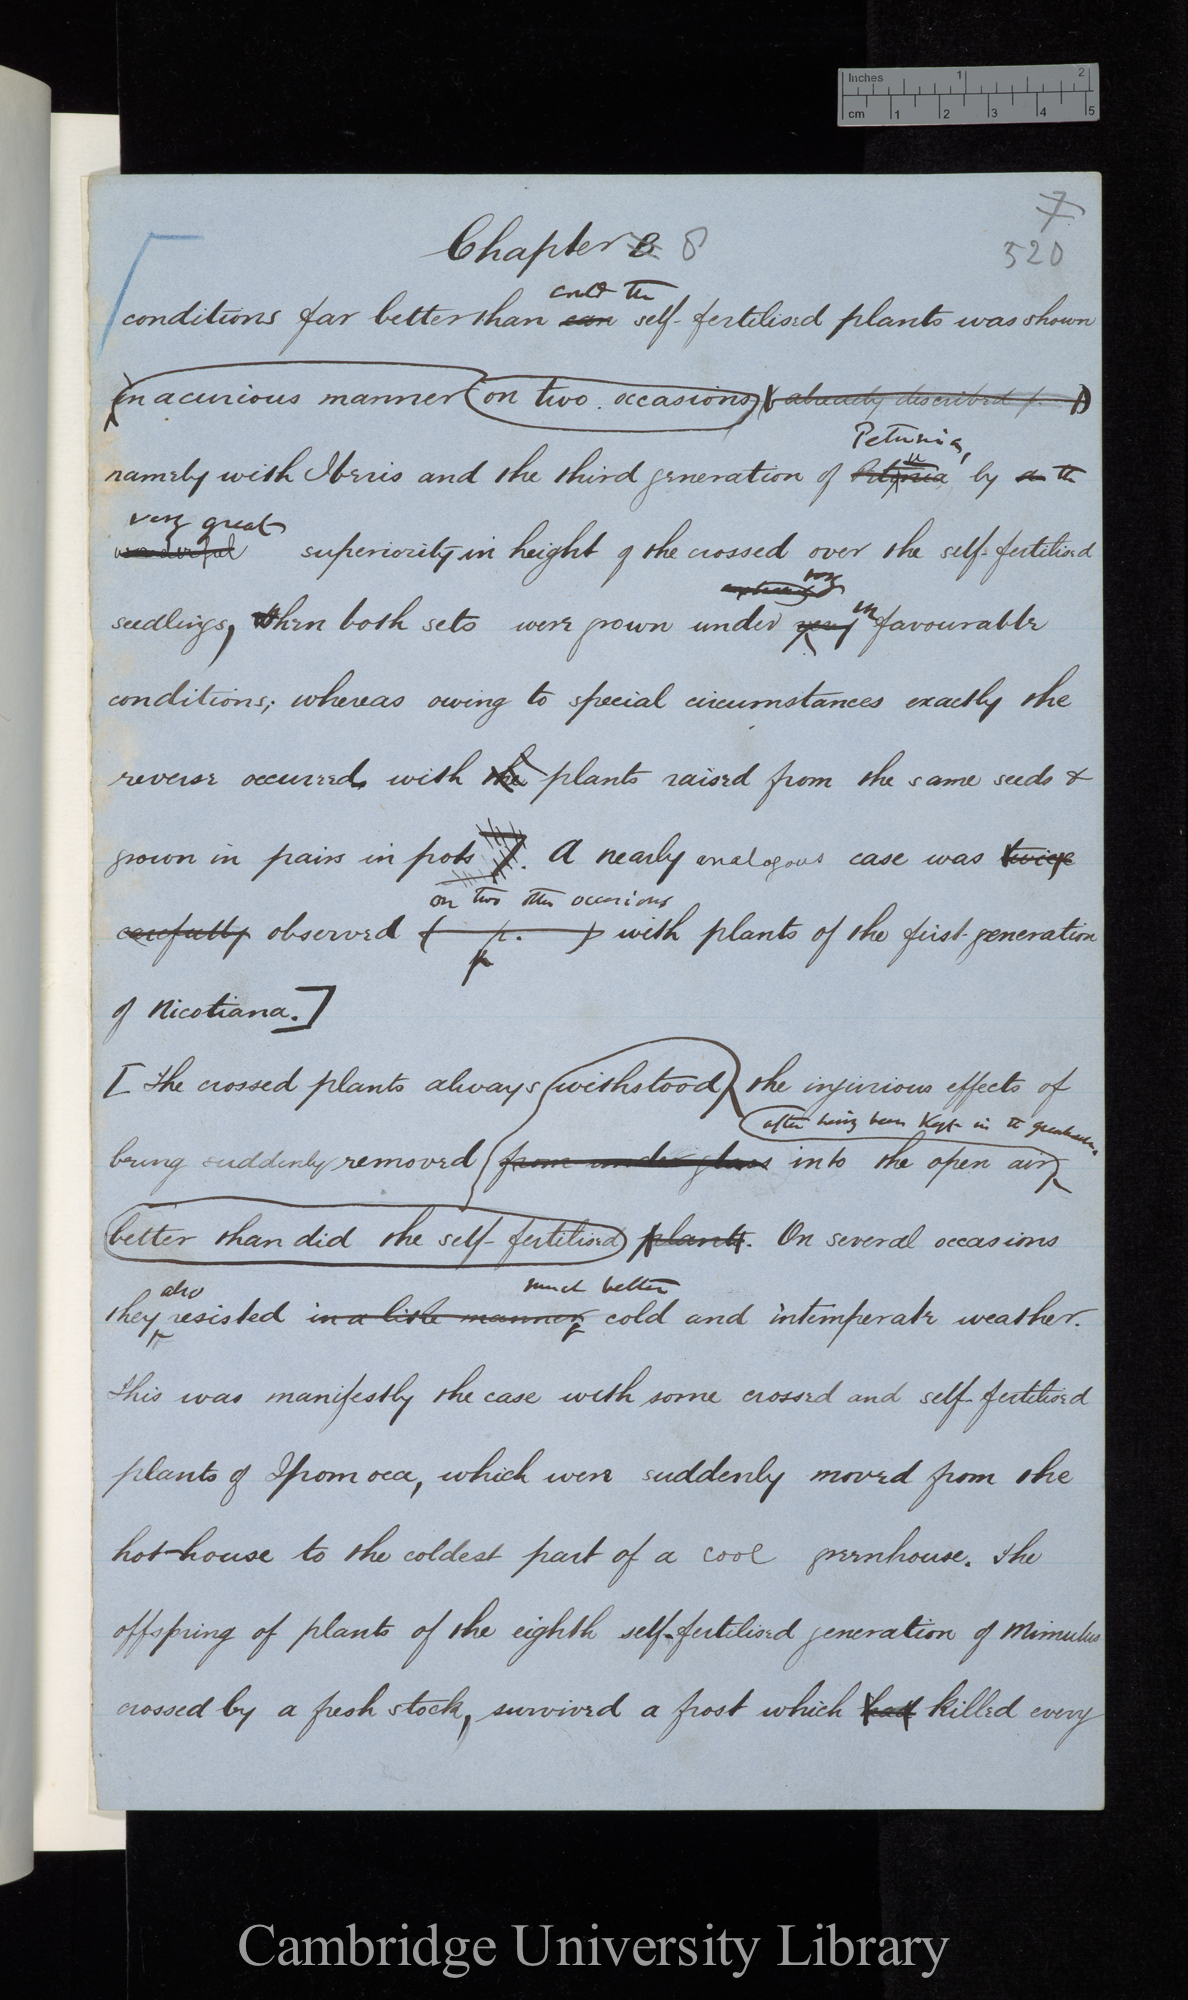 Inches 1 2
cm 1 2 3 4 5
7
Chapter 8 8
520
could the
conditions far better than can self-fertilised plants was shown
in a curious manner (on two occasions) (already described p. )
Petunia,
namely with Iberis and the third generation of by a the
very great
wonderful superiority in height of the crossed over the self-fertilised
very
seedlings, when both sets were grown under very un favourable
conditions; whereas owing to special circumstances exactly the
reverse occurred with the plants raised from the same seeds &
grown in pairs in pots. A nearly analogous case was twice
on two other occasions
carefully observed ( p. ) with plants of the first generation
of Nicotiana.]
[The crossed plants always withstood the injurious effects of
after being been kept in the greenhouse
being suddenly removed from under glass into the open air
better than did the self-fertilised plants. On several occasions
also much better
they resisted in a like manner cold and intemperate weather.
This was manifestly the case with some crossed and self-fertilised
plants of Ipomoea, which were suddenly moved from the
hot-house to the coldest part of a cool greenhouse. The
offspring of plants of the eighth self-fertilised generation of Mimulus
crossed by a fresh stock, survived a frost which had killed every
Cambridge University Library